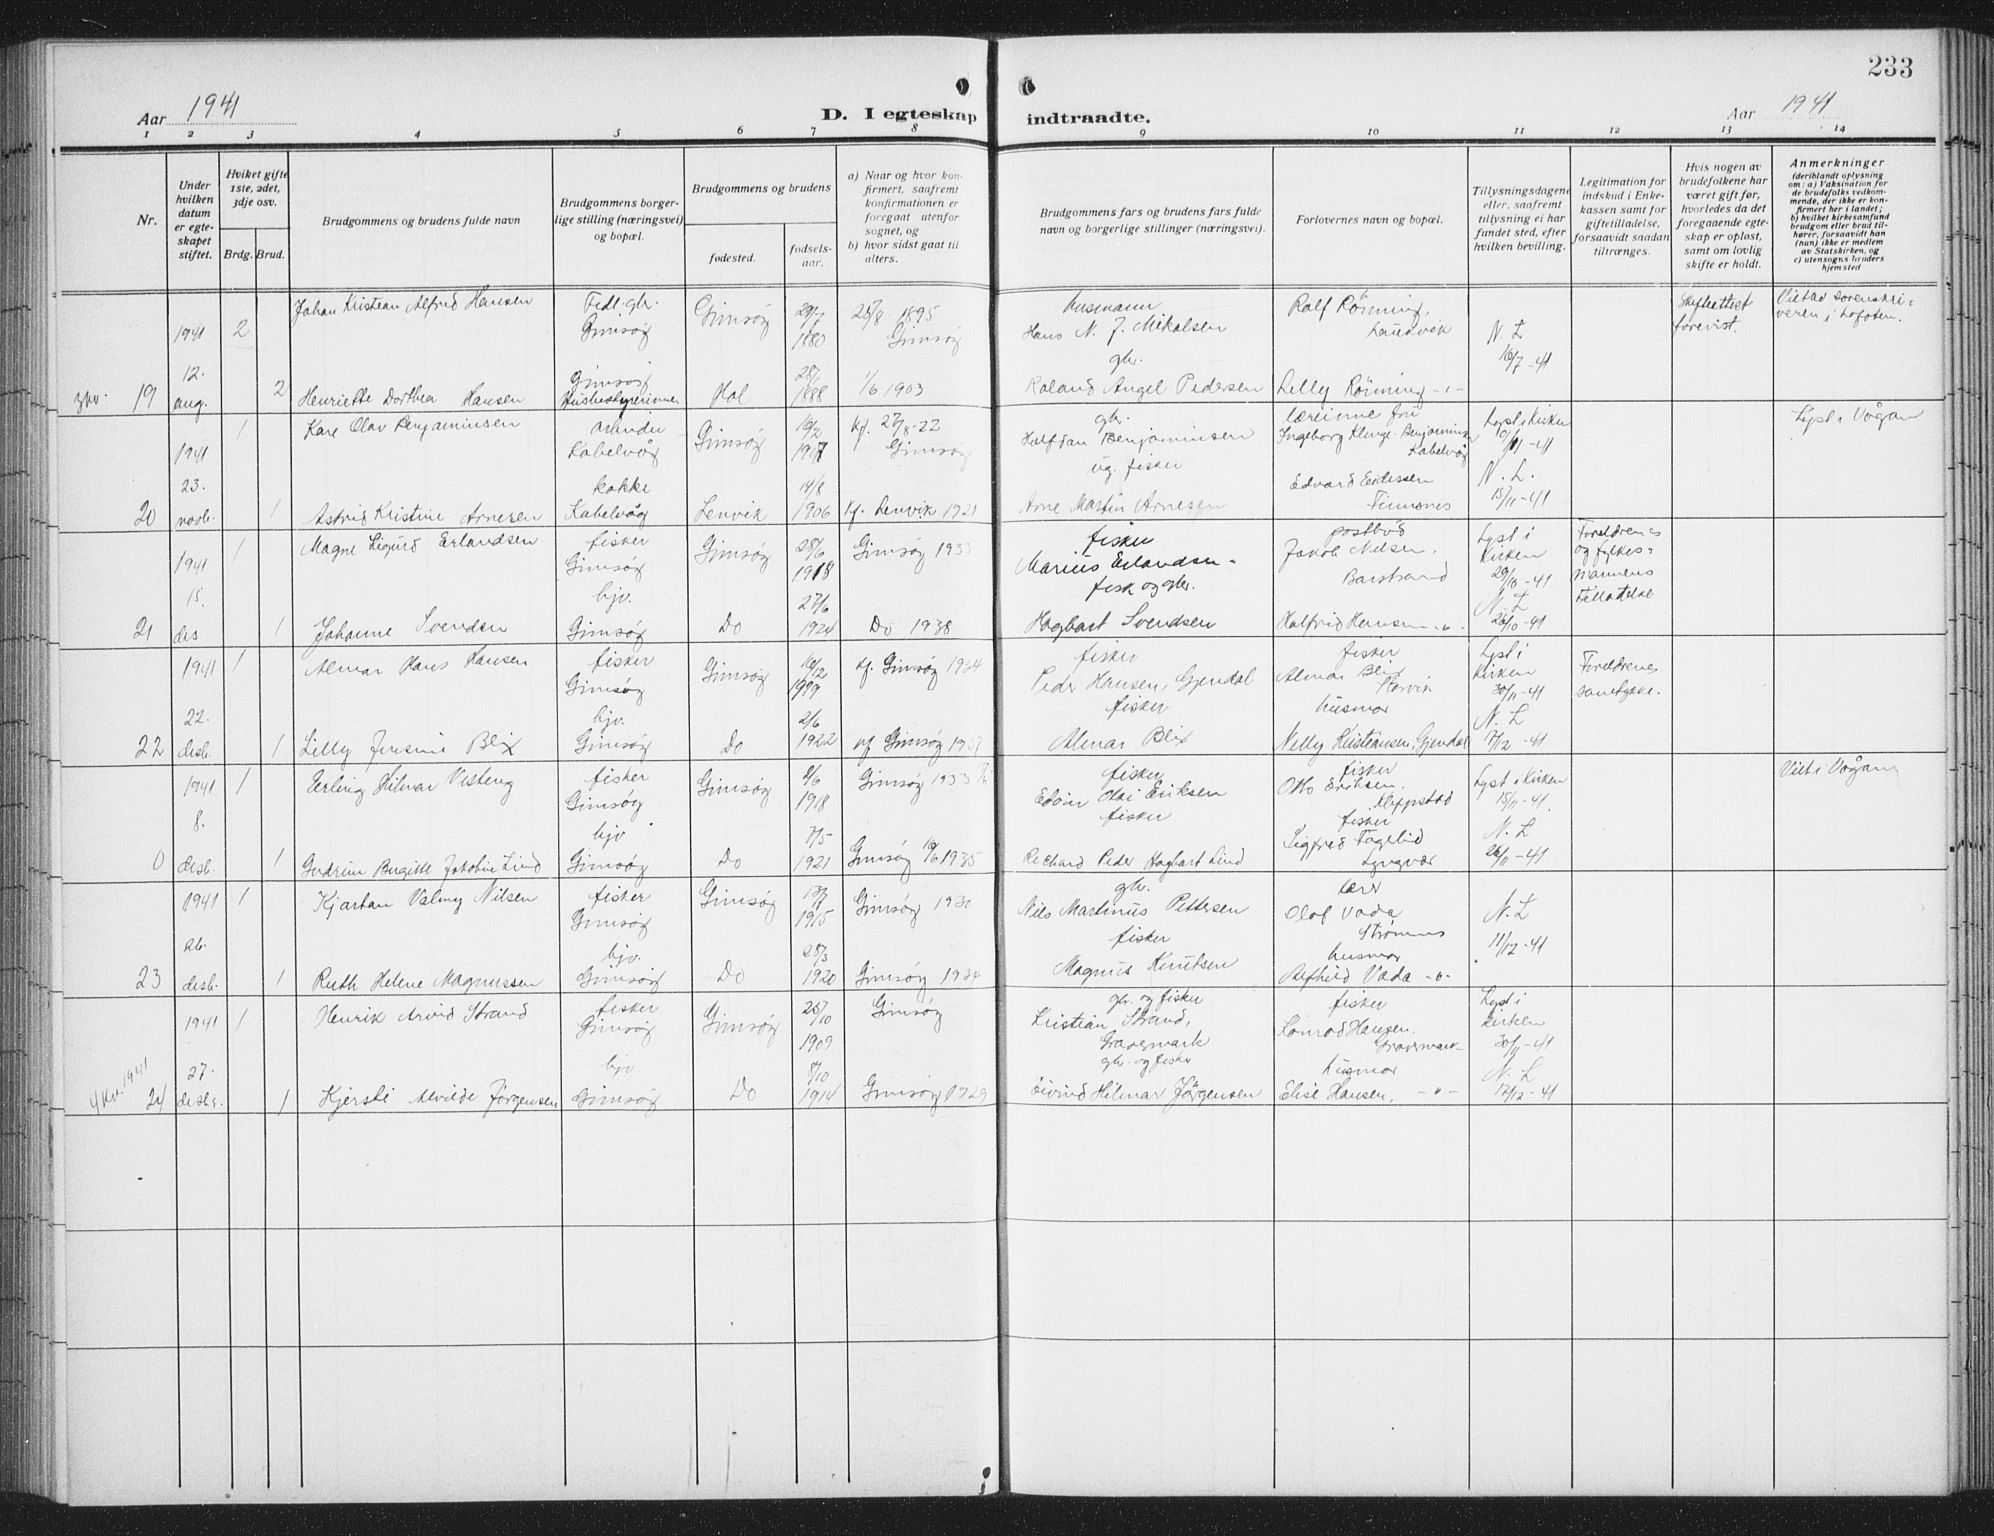 233
Aar 1941
D. I egteskap indtraadte.
Aar 1941
1 2 3 4 5 6 7 8 9 10 11 12 13 14
Nr.
Under hvilken datum er egteskapet stiftet.
Hviket gifte 1ste, 2det, 3dje osv.
Brdg. Brud.
Brudgommens og brudens fulde navn
Brudgommens borgerlige stilling (næringsvei) og bopæl.
Brudgommens og brudens
fødested.
fødselsaar.
a) Naar og hvor konfirmert, saafremt konfirmationen er foregaat utenfor sognet, og
b) hvor sidst gaat til alters.
Brudgommens fars og brudens fars fulde navn og borgerlige stillinger (næringsvei).
Forlovernes navn og bopæl.
Tillysningsdagene eller, saafremt tillysning ei har fundet sted, efter hvilken bevilling.
Legitimation for indskud i Enkekassen samt for giftetilladelse, forsaavidt saadan tiltrænges.
Hvis nogen av brudefolkene har været gift før, hvorledes da det foregaaende egteskap er opløst, samt om lovlig skifte er holdt.
Anmerkninger
(deriblandt oplysning om: a) Vaksination for de brudefolks vedkommende, der ikke er konfirmert her i landet; b) hvilket kirkesamfund brudgom eller brud tilhører, forsaavidt han (hun) ikke er medlem av Statskirken, og c) utensogns bruders hjemsted
1941 2 Johan Kristian Alfred Hansen Gimsøy Gimsøy 29/7 1880 25/8-1895 Gimsøy
husmann Hans N. J. Mikalsen Rolf Rönning, Laukvik N. L 16/7-41 Skifteattest forevist. Viet av sorenskriveren i Lofoten.
19 12. aug. 2 Henriette Dorthea Hansen Gimsøy Husbestyrerinne Hol 1888 1/6 1903
gbr. Roland Angel Pedersen Lilly Rönning
1941 1 Kare Olav Benjaminsen Kabelvåg Gimsøy 16/2 1917 Kf. 27/8-22 Gimsøy
gbr. Halfdan Benjaminsen Ingeborg Benjaminsen Kabelvåg Lyst i Kirken Lyst i Vågan
20 23. novb. 1 Astrid Kristine Arnesen kokke Kabelvåg Lenvik 14/8 1906 Kf. Lenvik 1921
ug. fisker Arne Martin Arnesen Finnsnes N. L. 15/11-41
1941 1 Magne Sigurd Erlandsen fisker Gimsøy Gimsøy 28/6 1918 Gimsøy 1933
fisker Marius Erlandsen postbud Jakob Nilsen, Barstrand Lyst i Kirken 29/10-41 Foreldrenes og fylkesmannens
21 15. des 1 Johanne Svendsen hjv. Gimsøy Do 27/6 1924 Do 1938
fisk og gbr. Hagbart Svendsen N. L 28/10-41
1941 1 Almar Hans Hansen fisker Gimsøy Gimsøy 16/12 Kf. Gimsøy 1934
fisker Peder Hansen, Gjendal fisker Almar Blix Lyst i Kirken 30/11-41 Foreldrenes samtykke.
22 22. desb. 1 Lilly Jensine Blix hjv. Gimsøy Do 2/6 1922 kf Gimsøy 1937
fisker Almar Blix husmor Nelly Kristiansen, Gjendal N. L 17/12-41
1941 1 Erling Hilmar Vesteng fisker Gimsøy Gimsøy 1918 Gimsøy 1933
fisker Eriksen fisker Otto Eriksen. Kleppstad Lyst i Kirken 15/11-41. Viet i Vågan
0 8. desb. 1 Gudrun Birgitte Jakobine Lind hjv Gimsøy Do 7/5 1921 Gimsøy 16/6 1935
fisker Richard Peder Hagbart Lind fisker Sigfred Fagelid Lyngvær N. L 26/11-41
1941 1 Kjartan Valmy Nilsen fisker Gimsøy Gimsøy 13/7 1915 Gimsøy 1930
gbr. Nils Martinus Pettersen Olaf Vada N. L 11/12-41
23 26. desb. 1 Ruth Helene Magnussen hjv. Gimsøy Do 28/3 1920 Gimsøy 1934
fisker Magnus Knutsen husmor Vada
1941 1 Henrik Arvid Strand fisker Gimsøy Gimsøy 26/10 1909 Gimsøy
gbr. og fisker Kristian Strand, Gravermark fisker Konrad Hansen. Gravermark Lyst i Kirken 30/11-41
4 kv. 1941 24 27. desb. 1 Kjersti Alvilde Jørgensen hjv Gimsøy Do 8/10 1914 Gimsøy 1929
gbr. og fisker Öivind Hilmar Jørgensen husmor Elise Hansen, N. L 17/12-41